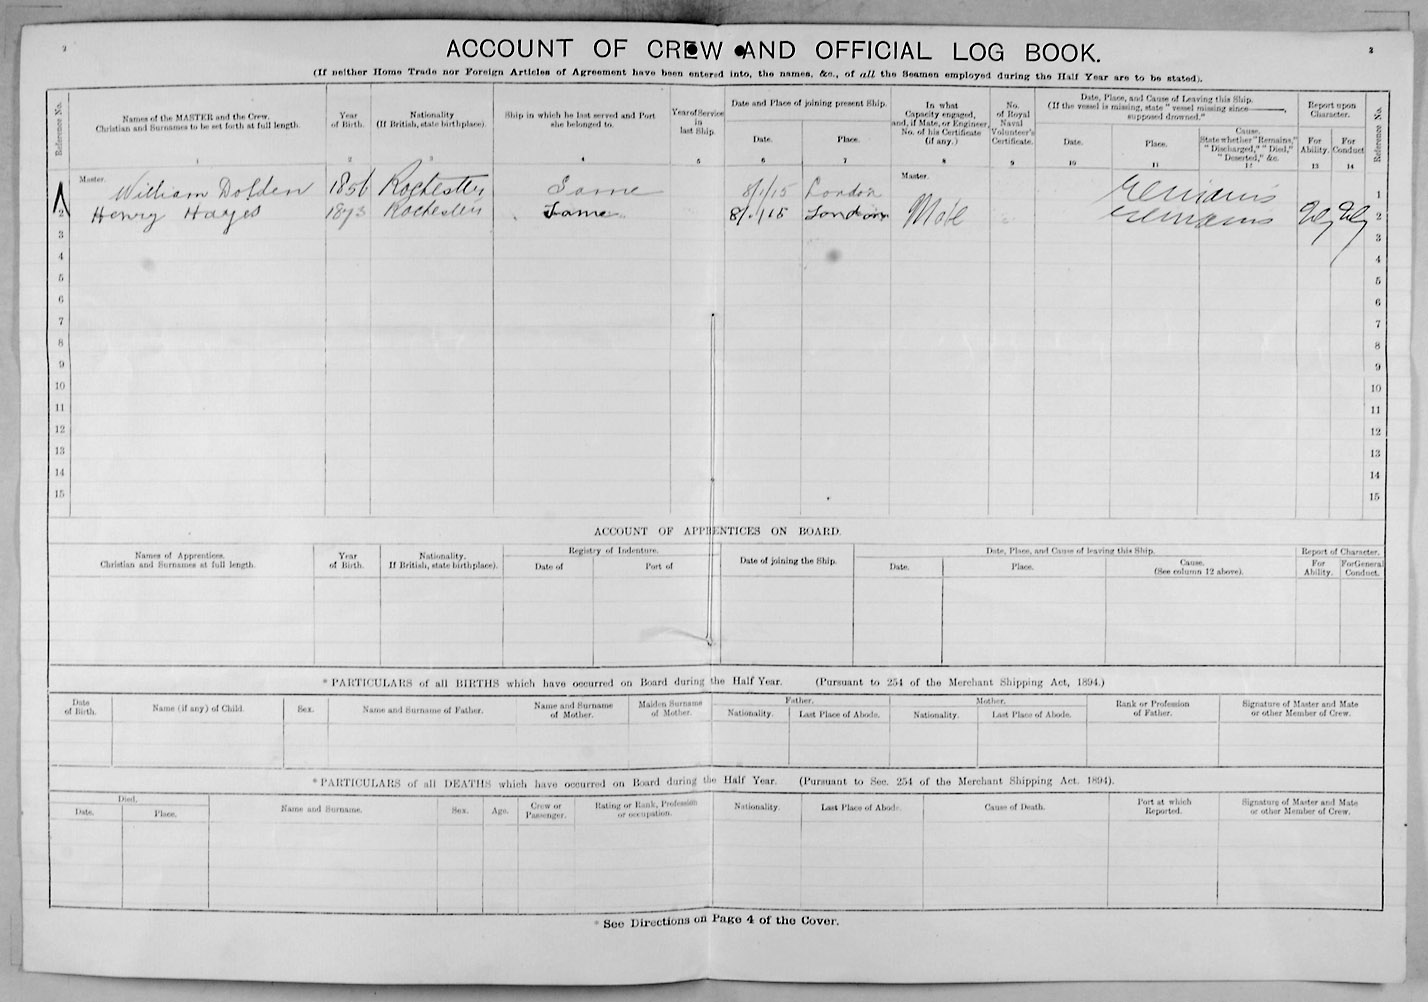 3
3
ACCOUNT OF CREW AND OFFICIAL LOG BOOK.
(If neither Home Trade nor Foreign Articles of Agreement have been entered into, the names, &c., of all the Seamen employed during the Half Year are to be stated).
Reference No.
Names of the MASTER and the Crew. Christian and Surnames to be set forth at full length.
Year of Birth.
Nationality (If British, state birthplace).
Ship in which he last served and Port she belonged to.
Year of Service in last Ship.
Date and Place of joining present Ship.
Date.
Place.
In what Capacity engaged, and, if Mate, or Engineer, No. of his Certificate (if any.)
No. of Royal Naval Volunteer's Certificate.
Date, Place, and Cause of Leaving this Ship. (If the vessel is missing, state "vessel missing since ———, supposed drowned."
Date.
Place.
Cause. State whether "Remains," "Discharged," "Died," "Deserted," &c.
Report upon Character.
For Ability.
For Conduct
Reference No.
1 2 3 4 5 6 7 8 9 10 11 12 13 14
Master. William Dolden 1856 Rochester Same 8/1/15 London Master. remains 1
2 Henry Hayes 1873 Rochester Same 8/1/15 London Mate remains 2
3 3
4 4
5 5
6 6
7 7
8 8
9 9
10 10
11 11
12 12
13 13
14 14
15 15
ACCOUNT OF APPRENTICES ON BOARD.
Names of Apprentices. Christian and Surnames at full length.
Year of Birth.
Nationality. If British, state birthplace).
Registry of Indenture.
Date of
Port of
Date of joining the Ship.
Date, Place, and Cause of leaving this Ship.
Date.
Place.
Cause. (See column 12 above).
Report of Character.
For Ability.
For General Conduct.
* PARTICULARS of all BIRTHS which have occurred on Board during the Half Year. (Pursuant to 254 of the Merchant Shipping Act, 1894.)
Date of Birth.
Name (if any) of Child.
Sex.
Name and Surname of Father.
Name and Surname of Mother.
Maiden Surname of Mother.
Father.
Nationality.
Last Place of Abode.
Mother.
Nationality.
Last Place of Abode.
Rank or Profession of Father.
Signature of Master and Mate or other Member of Crew.
* PARTICULARS of all DEATHS which have occurred on Board during the Half Year. (Pursuant to Sec. 254 of the Merchant Shipping Act. 1894).
Died.
Date.
Place.
Name and Surname.
Sex.
Age.
Crew or Passenger.
Rating or Rank, Profession or occupation.
Nationality.
Last Place of Abode.
Cause of Death.
Port at which Reported.
Signature of Master and Mate or other Member of Crew.
* See Directions on Page 4 of the Cover.